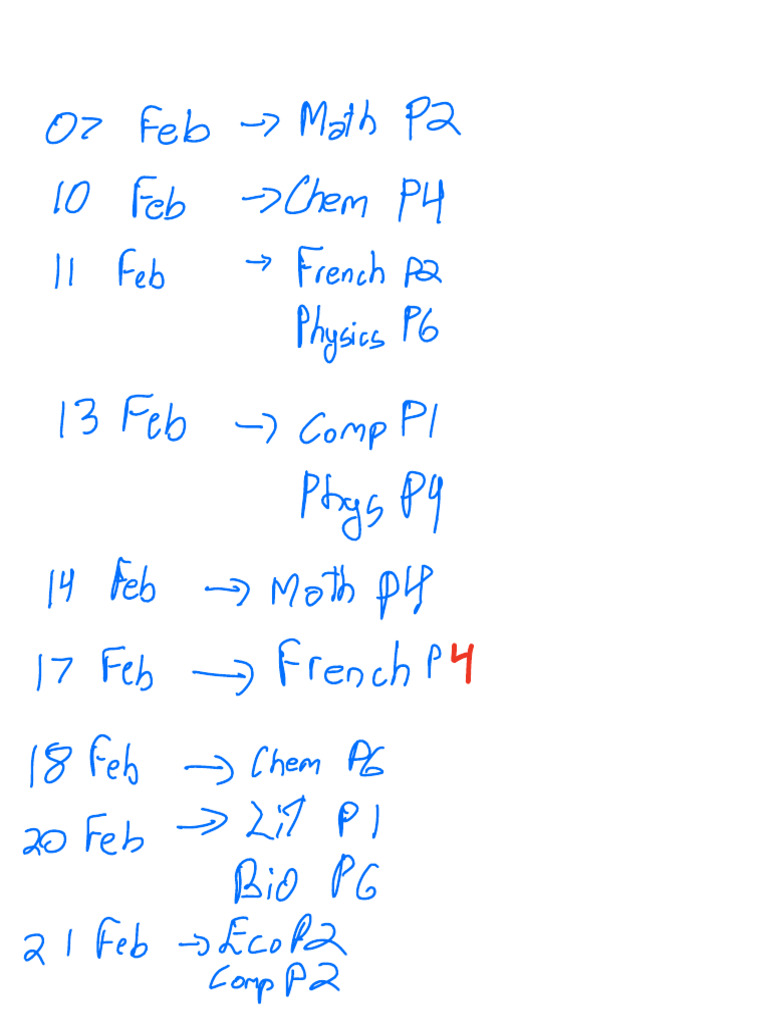 07 Feb → Math P2
10 Feb → Chem P4
11 Feb → French P2
Physics P6
13 Feb → Comp P1
Phys P4
14 Feb → Math P4
17 Feb → French P4
18 Feb → Chem P6
20 Feb → Lit P1
Bio P6
21 Feb → Eco P2
Comp P2